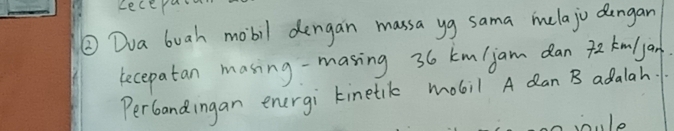 ② Dua buah mobil dengan massa yg sama melaju dengan
kecepatan masing-masing 36 km/jam dan 72 km/jam.
Perbandingan energi kinetik mobil A dan B adalah...